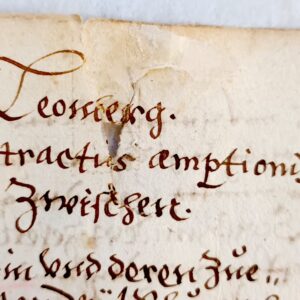 Leonberg.
tractus emptionis
Zwischen.
in vnd deren Zue„